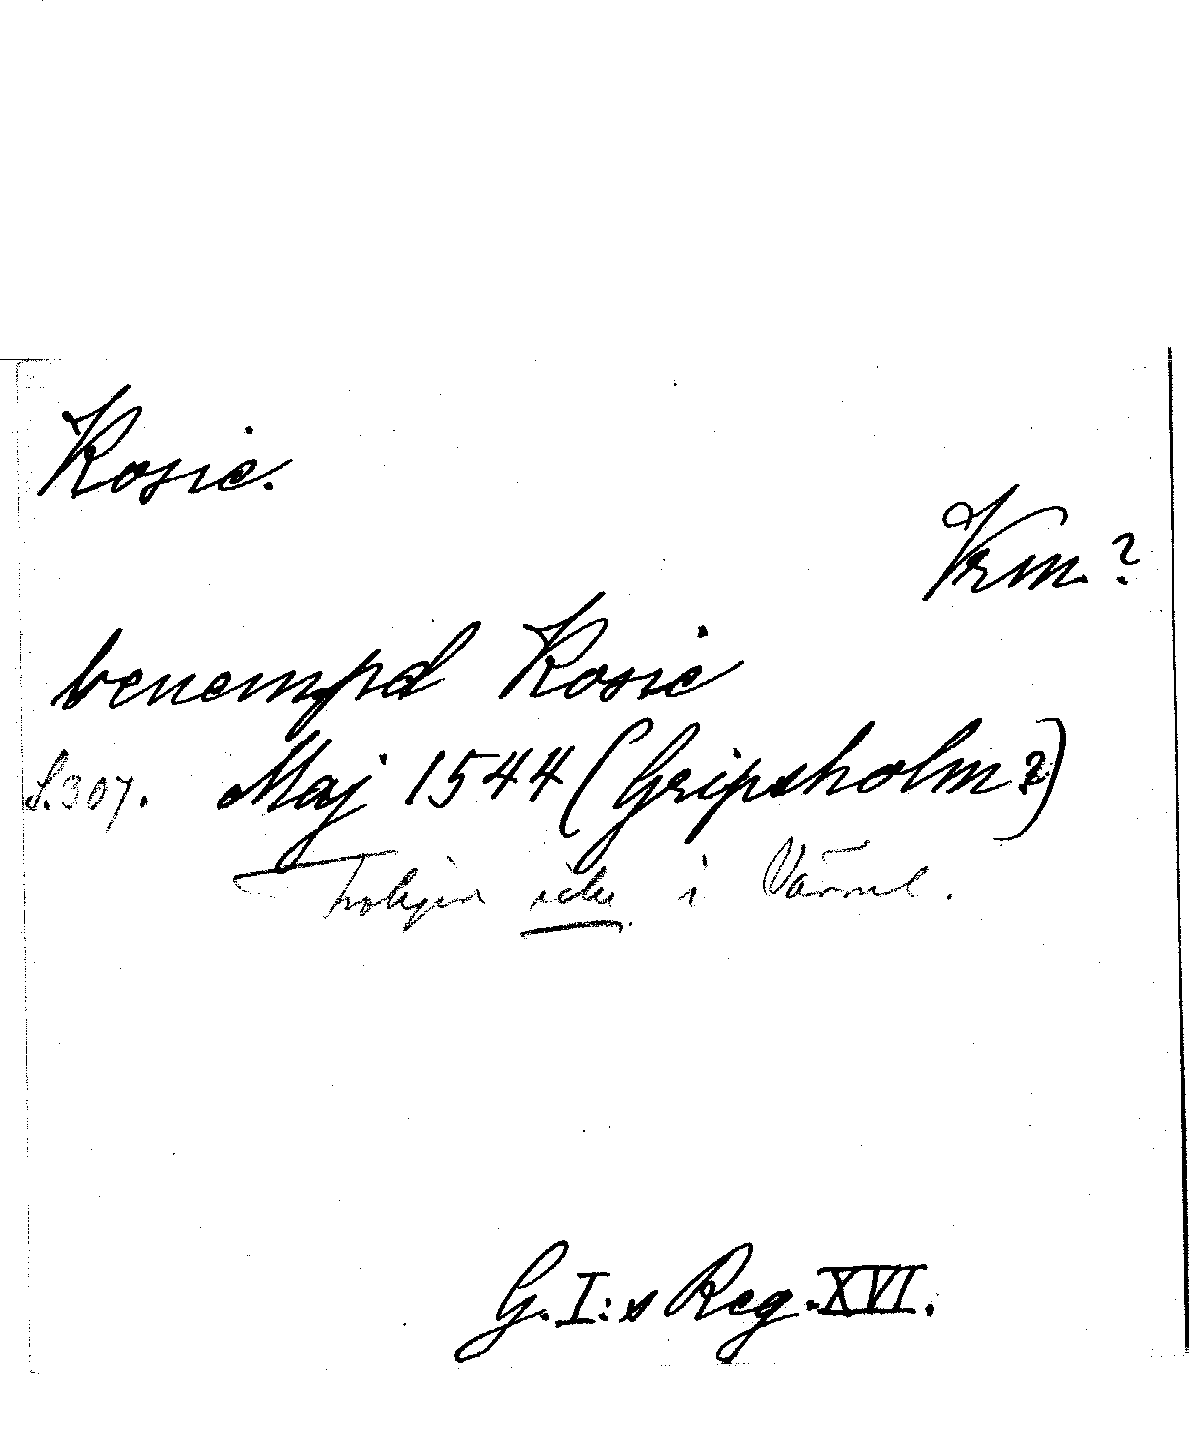 Kosie.
Vrm.?
benempd Kosie
S.307. Maj 1544 (Gripsholm?)
Troligen icke i Värml.
G.I:s Reg. XVI.